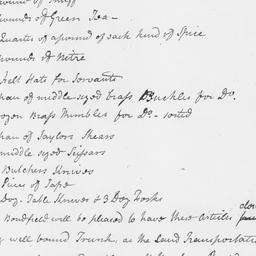 ound of Snuff
ounds of Green Tea—
Quarter of a pound of each kind of Spice
pounds of Nitre
Felt Hats for Servants
pair of middle sized brass Buckles for Do.
ozen Brass Thimbles for Do- sorted
pair of Taylors Shears
middle sized Scissars
Butchers Knives
Pieces of Tape
Doz. Table Knives & 3 Doz Forks
Bondfield will be pleased to have these Articles
well bound Trunk, as the Land Transportatio